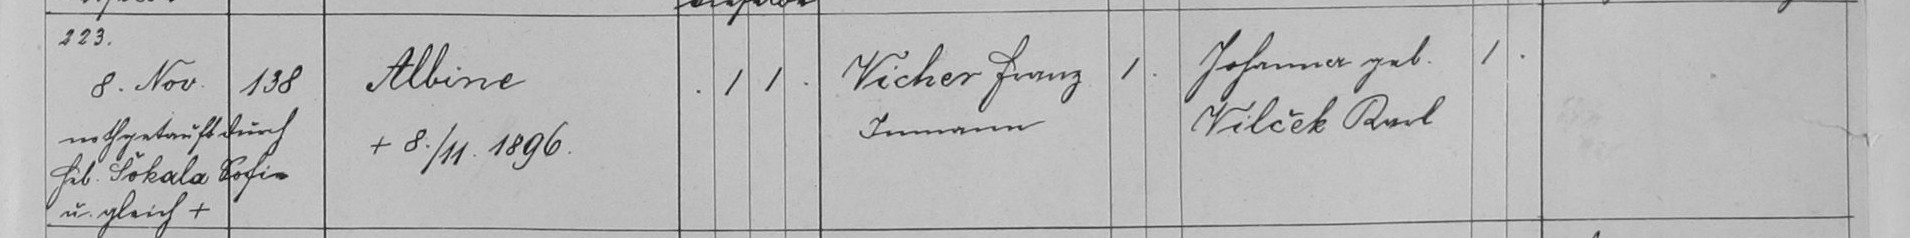 223.
8. Nov. 138 Albine . 1 1 . Vicher Franz 1 . Johanna geb. 1 .
nothgetauft durch + 8./11. 1896. Inmann Vilček Karl
Heb. Sokala Sofie
u. gleich +